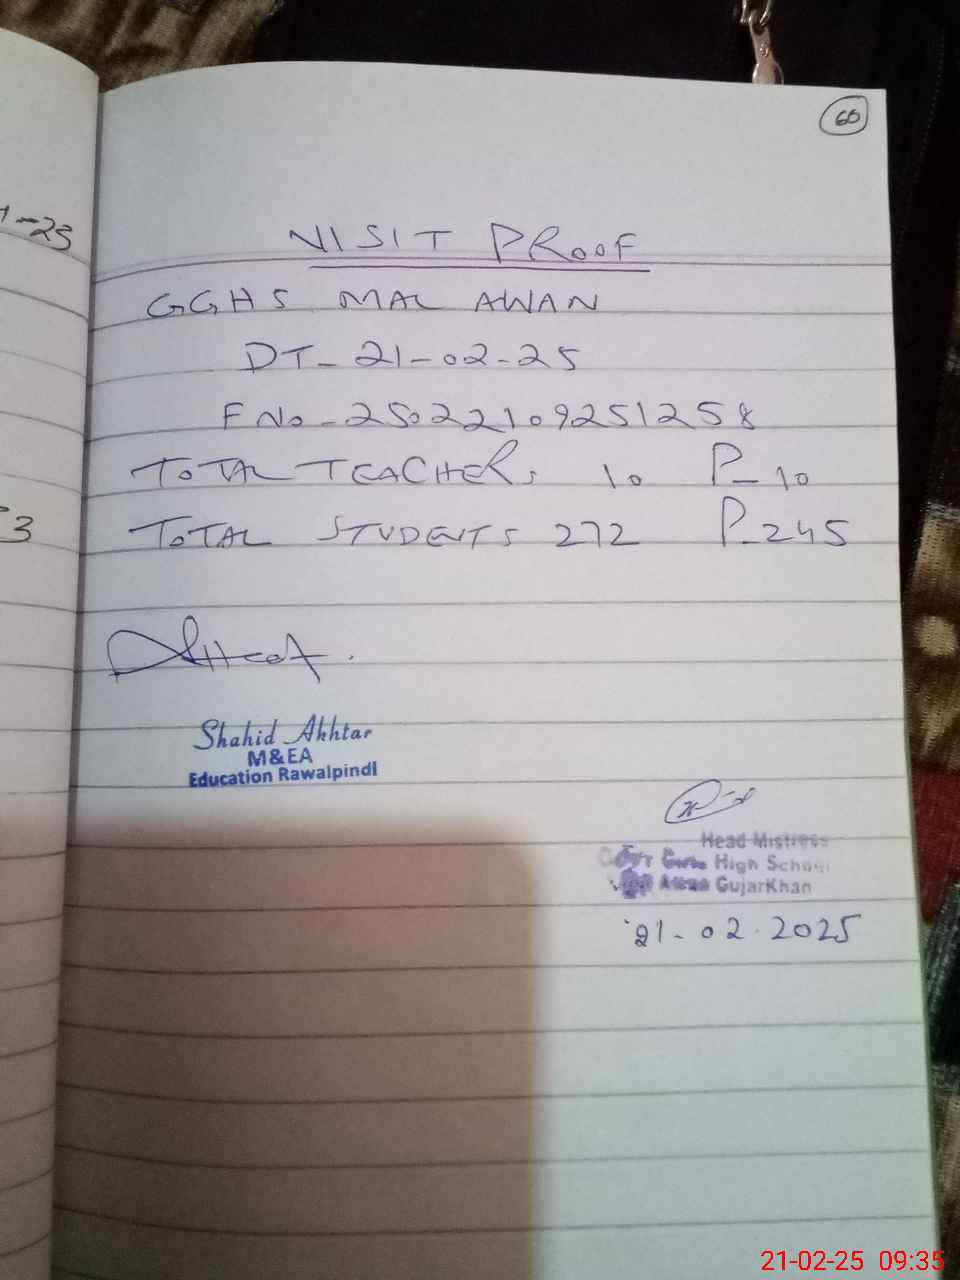 60
1-25
VISIT PROOF
GGHS MAL AWAN
DT- 21-02-25
F No - 25022109251258
TOTAL TEACHERS 10 P-10
TOTAL STUDENTS 272 P-245
3
Shahid Akhtar
M&EA
Education Rawalpindi
Head Mistress
Govt Girls High School
Awan GujarKhan
21-02-2025
21-02-25 09:35